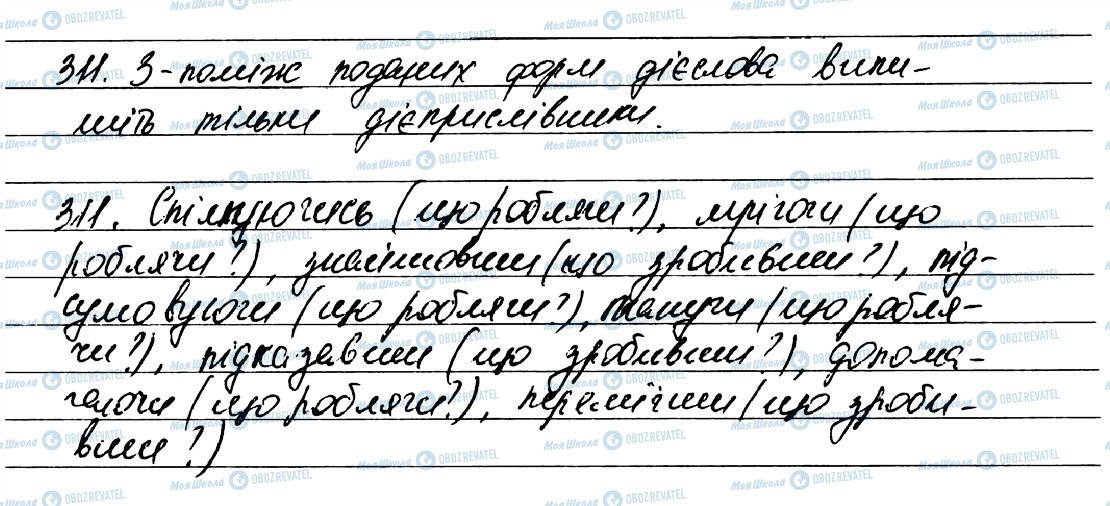 311. З-поміж поданих форм дієслова випи-
шіть тільки дієприслівники.
311. Спілкуючись (що роблячи?), мріючи (що
роблячи?), знайшовши (що зробивши?), під-
сумовуючи (що роблячи?), пишучи (що робля-
чи?), підказавши (що зробивши?), допома-
гаючи (що роблячи?), перемігши (що зроби-
вши?)